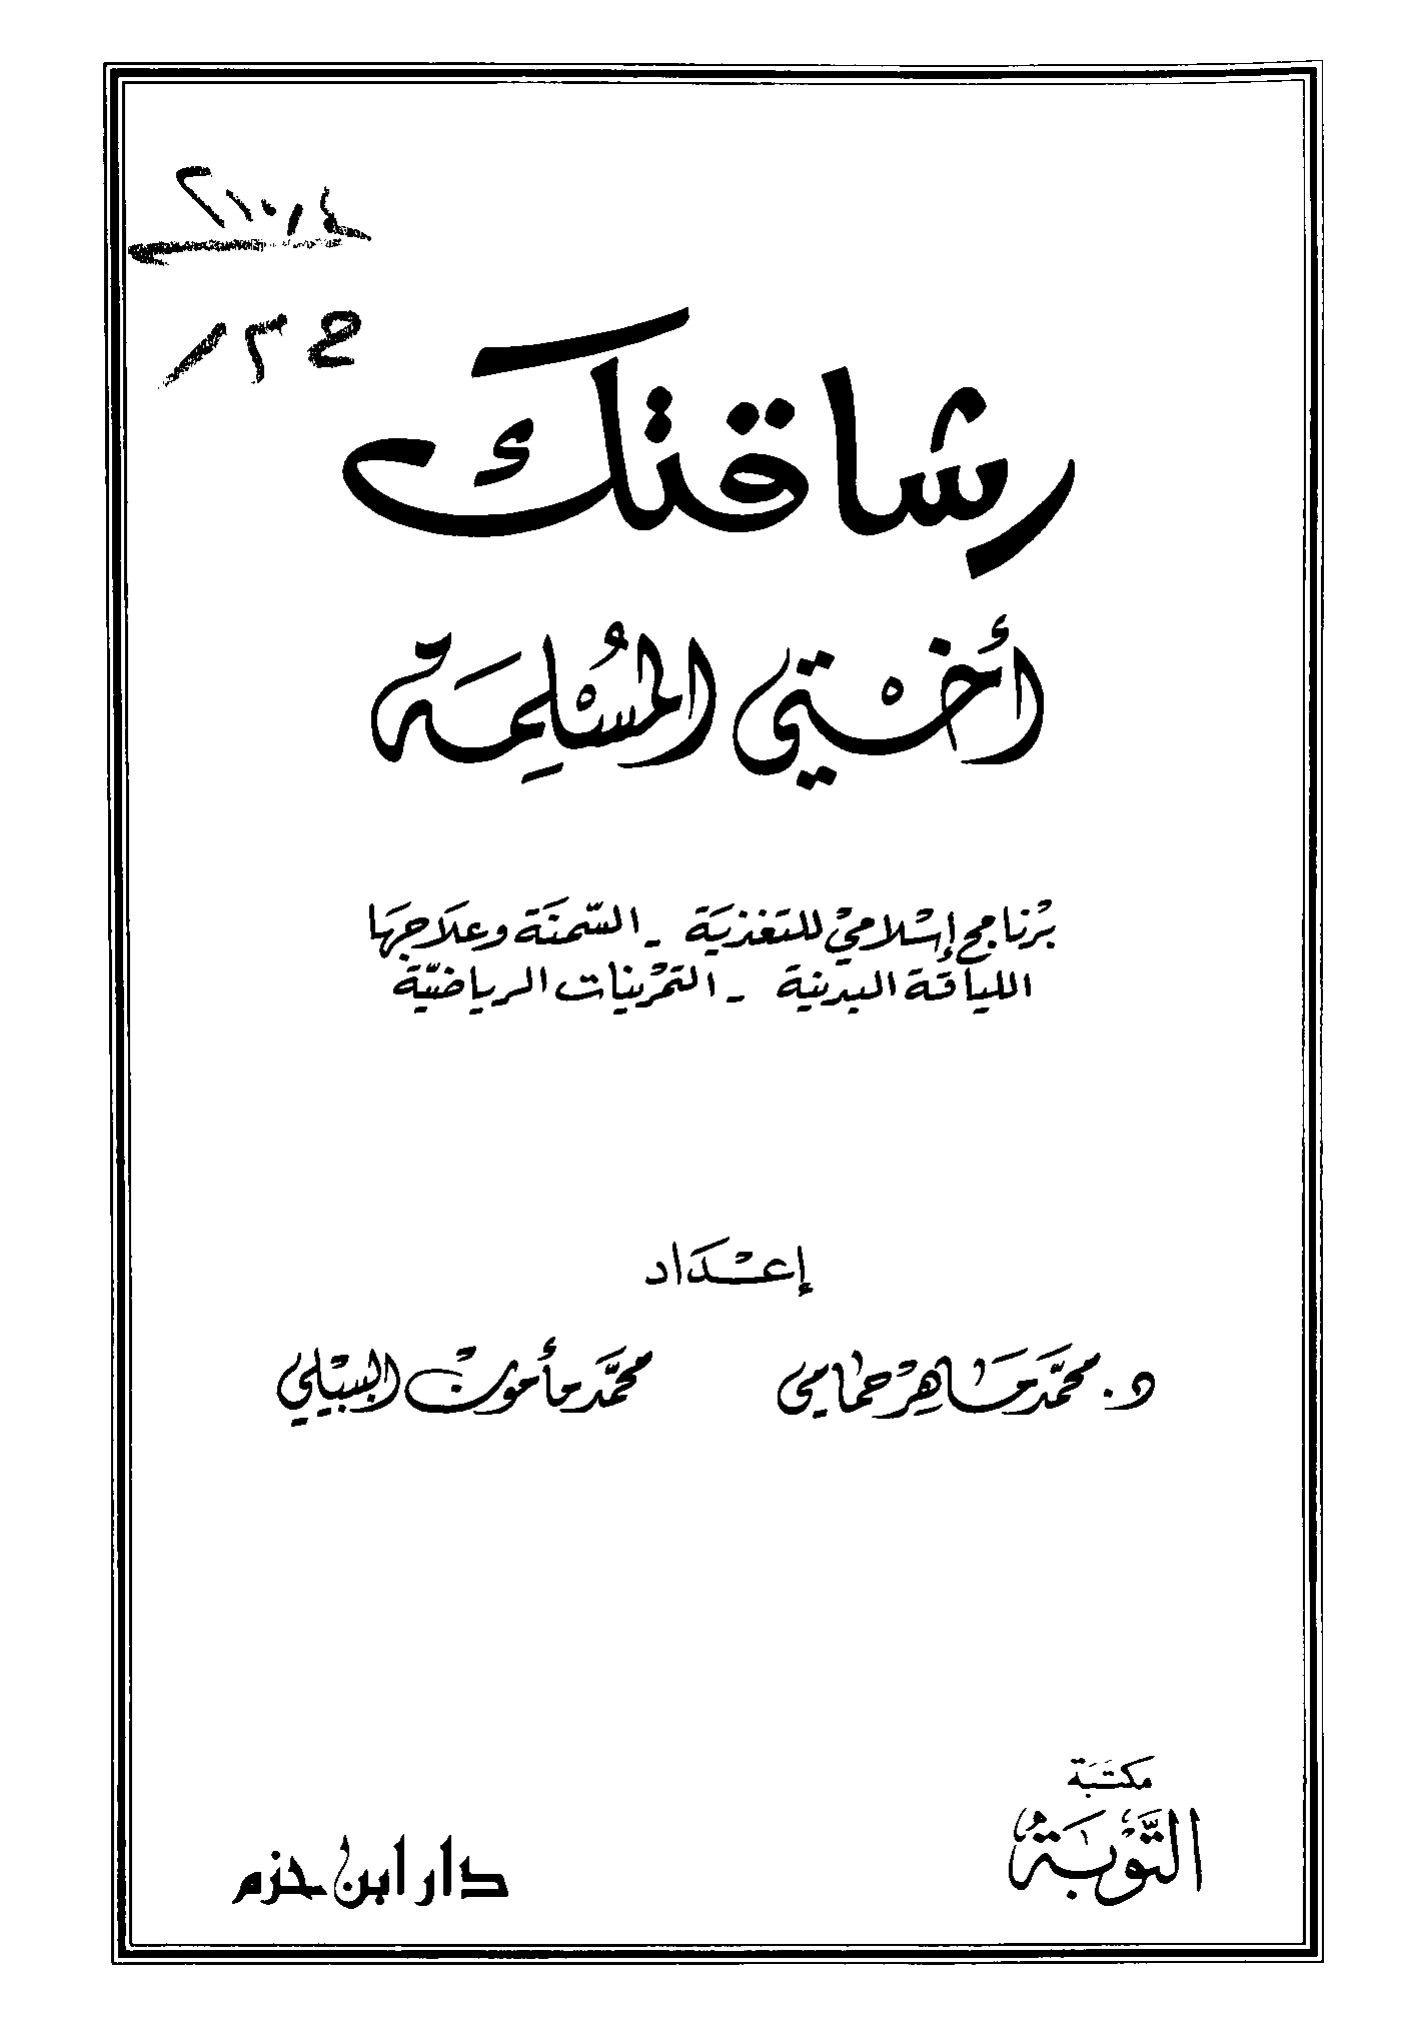 رشاقتك
أختي المسلمة
برنامج إسلامي للتغذية - السمنة وعلاجها
اللياقة البدنية - التمرينات الرياضية
إعداد
د. محمد ماهر حمامي
محمد مأمون السبيلي
مكتبة
التوبة
دار ابن حزم